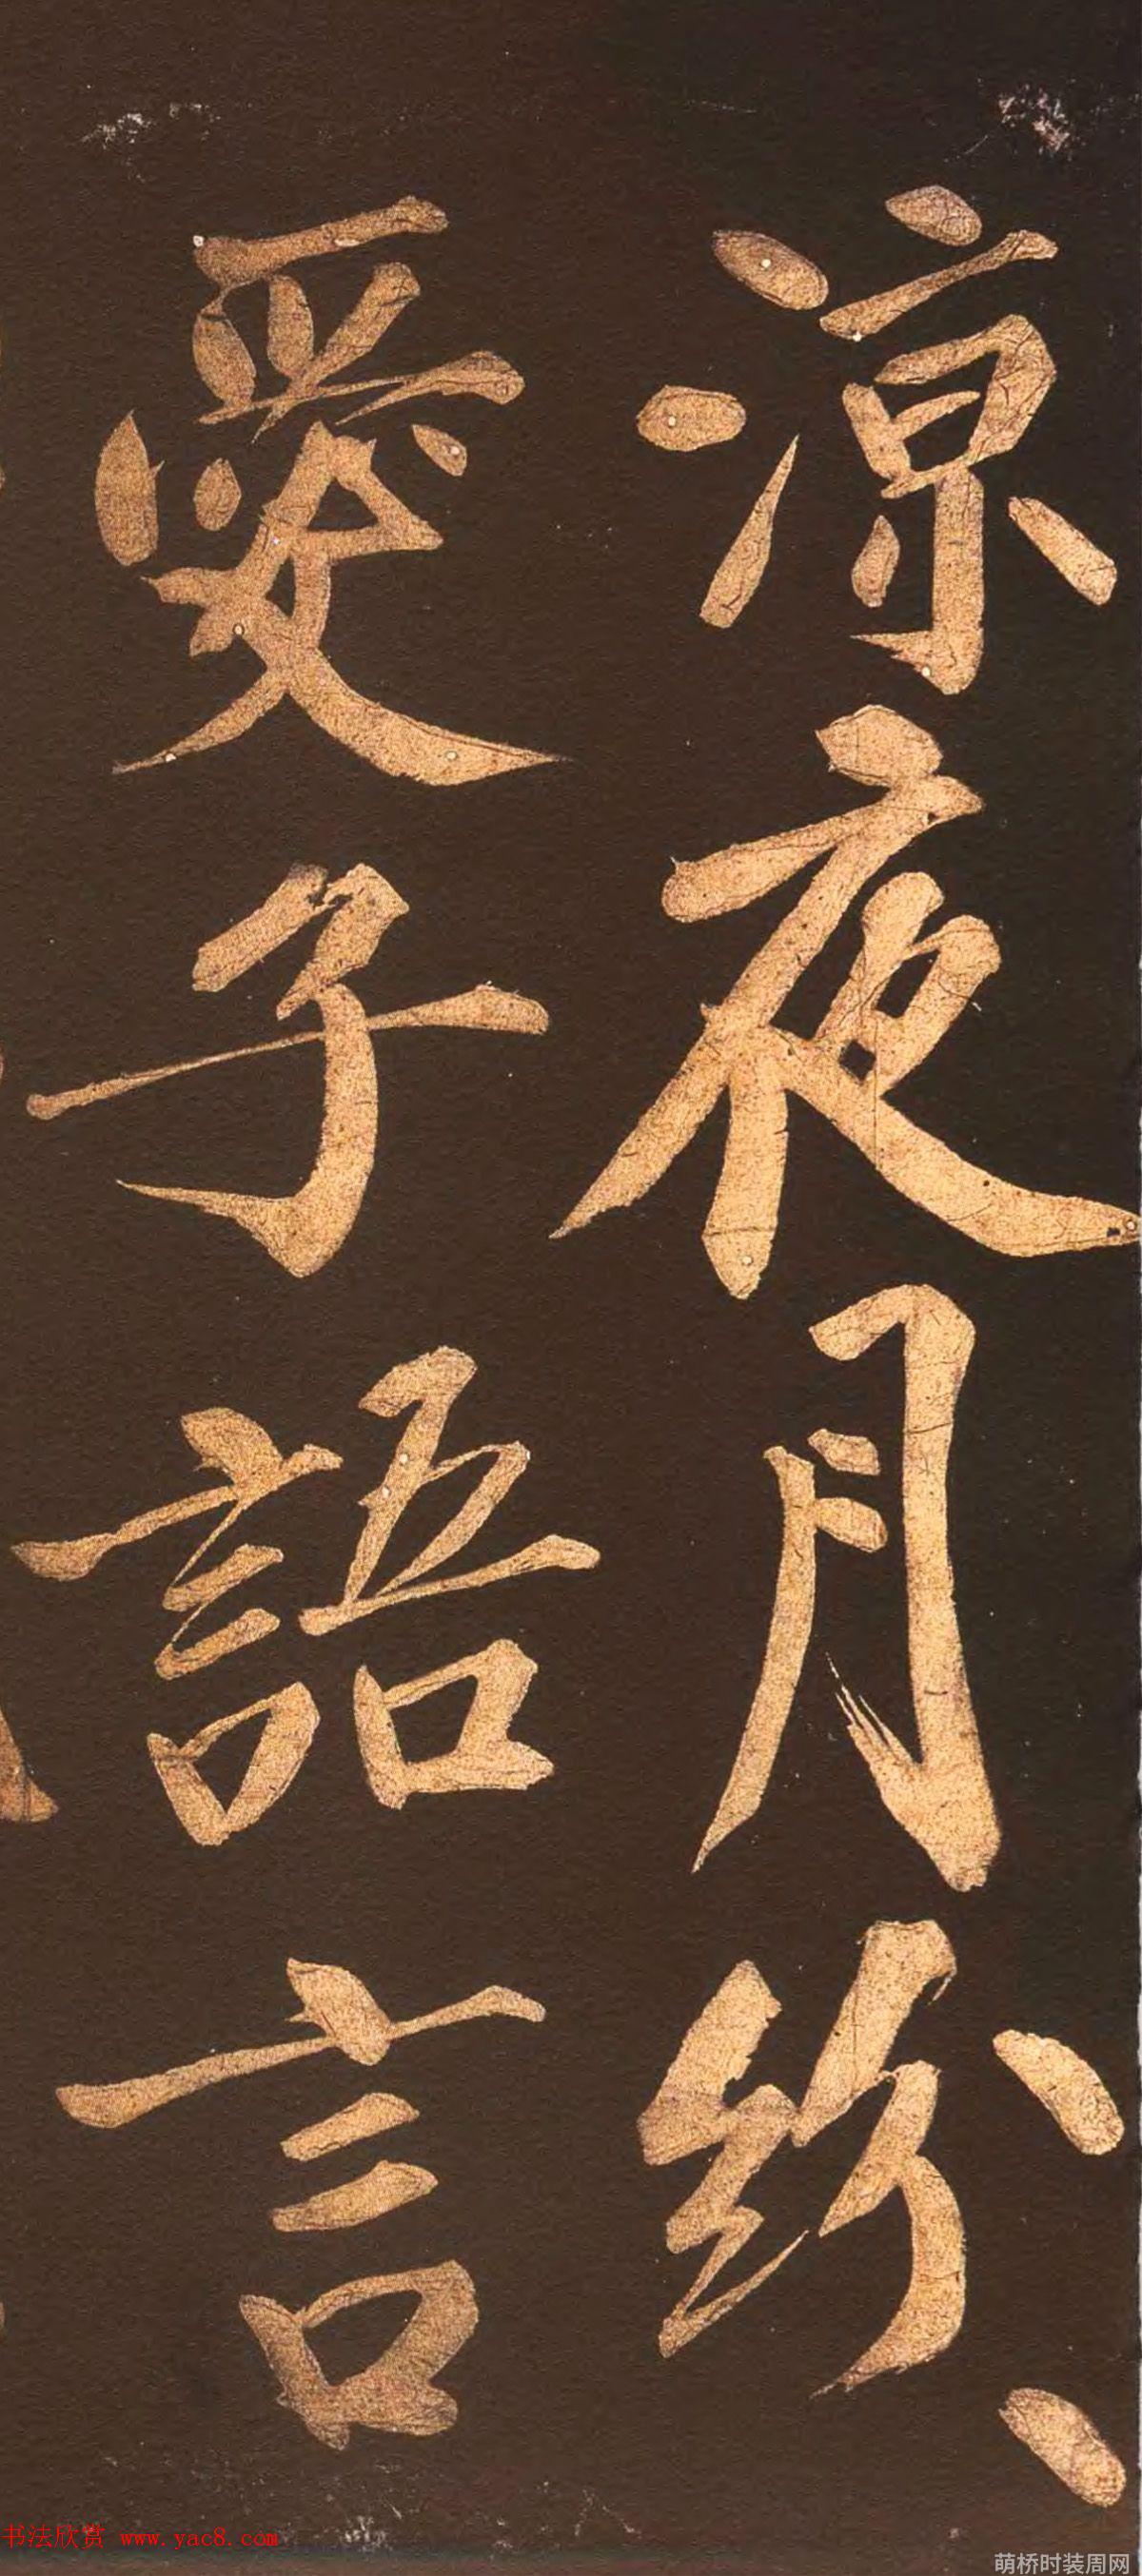 凉夜月纷、
愛子語言
书法欣赏 www.yac8.com
萌桥时装周网